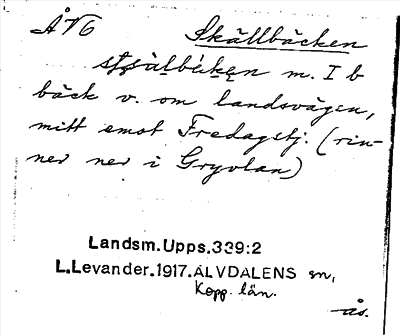 ÅV6 Skällbäcken
m. I b
bäck v. om landsvägen,
mitt emot Fredagstj. (rin-
ner ner i Gryvlan)
Landsm.Upps.339:2
L.Levander.1917.ÄLVDALENS sn,
Kopp. län.
ås.